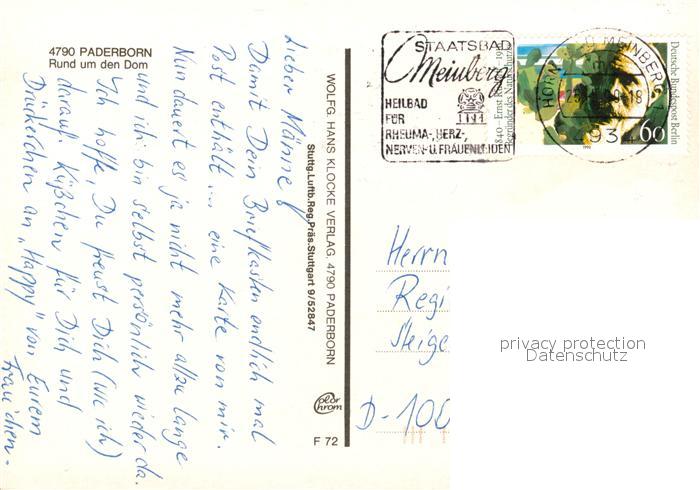 4790 PADERBORN
Rund um den Dom
Lieber Männe,
Damit Dein Briefkasten endlich mal
Post enthält... eine Karte von mir.
Nun dauert es ja nicht mehr allzu lange
und ich bin selbst persönlich wieder da.
Ich hoffe, Du freust Dich (wie ich)
darauf. Küßchen für Dich und
Drückerchen an "Happy" von Eurem
Frauchen.
WOLFG. HANS KLOCKE VERLAG, 4790 PADERBORN
Stuttg.Luftb.Reg.Präs.Stuttgart 9/52847
F 72
STAATSBAD
Meinberg
HEILBAD
FÜR
RHEUMA-, HERZ-,
NERVEN-U.FRAUENLEIDEN
Deutsche Bundespost Berlin
60
Herrn
Regi
Steige
D-100
privacy protection
Datenschutz